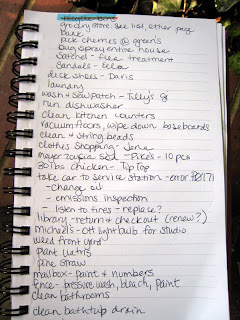 grocery store - see list, other page
bank
pick cherries @ gran's
bug spray entire house
Satchel - flea treatment
Sandals - Bella
deck shoes - Davis
laundry
wash & sew patch - Tilly's
run dishwasher
clean kitchen counters
vacuum floors, wipe down baseboards
clean & string beads
clothes shopping - Jane
mayer zoysia sod - Pike's - 10 pcs
20 lbs chicken - Tip Top
take car to service station - error P0171
- change oil
- emissions inspection
- listen to tires - replace?
library - return & checkout (renew?)
michaels - Ott lightbulb for studio
weed front yard
plant liatris
pine straw
mailbox - paint & numbers
fence - pressure wash, bleach, paint
clean bathrooms
clean bathtub drain